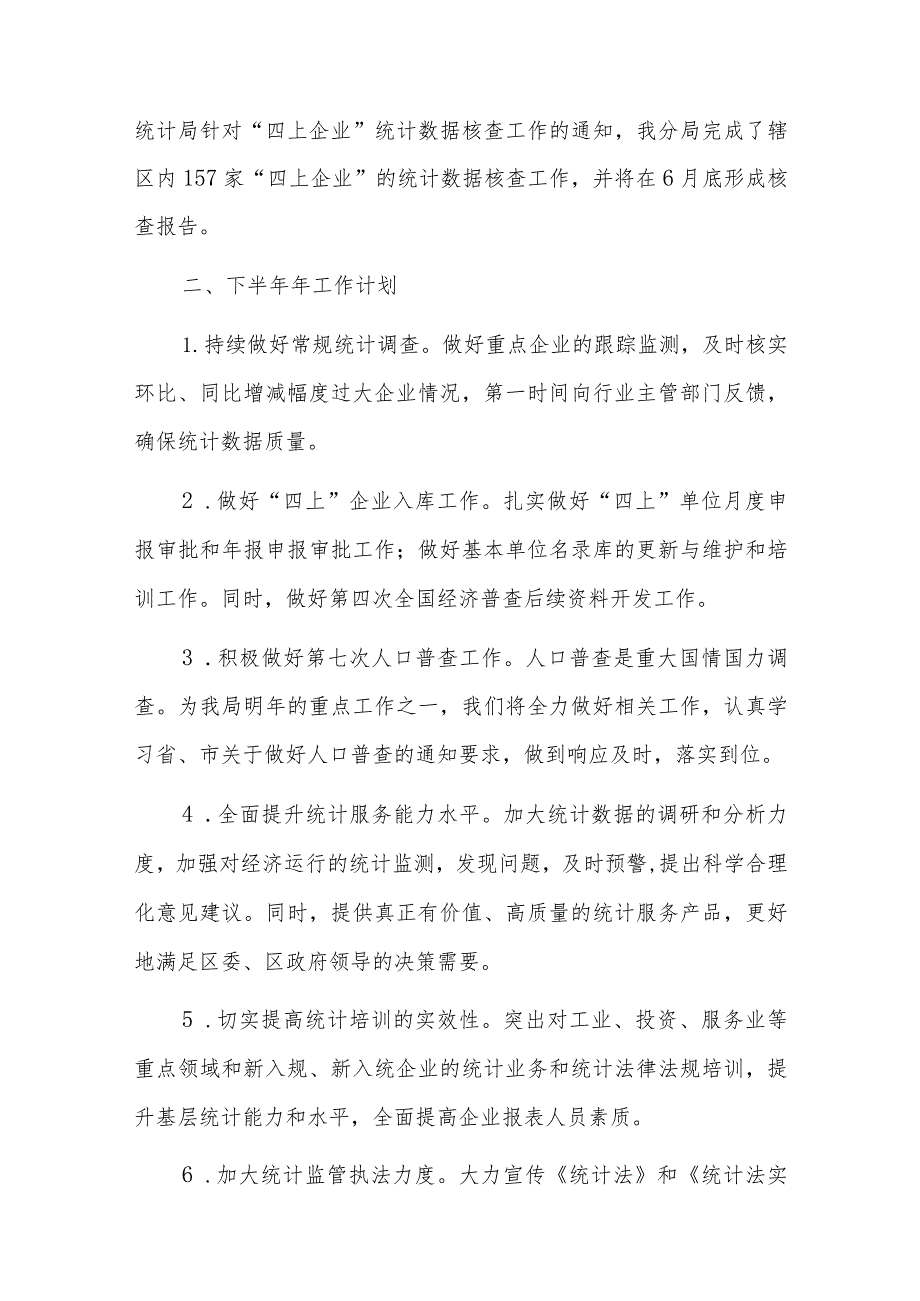 统计局针对“四上企业”统计数据核查工作的通知，我分局完成了辖
区内157家“四上企业”的统计数据核查工作，并将在6月底形成核
查报告。
二、下半年年工作计划
1.持续做好常规统计调查。做好重点企业的跟踪监测，及时核实
环比、同比增减幅度过大企业情况，第一时间向行业主管部门反馈，
确保统计数据质量。
2.做好“四上”企业入库工作。扎实做好“四上”单位月度申
报审批和年报申报审批工作；做好基本单位名录库的更新与维护和培
训工作。同时，做好第四次全国经济普查后续资料开发工作。
3.积极做好第七次人口普查工作。人口普查是重大国情国力调
查。为我局明年的重点工作之一，我们将全力做好相关工作，认真学
习省、市关于做好人口普查的通知要求，做到响应及时，落实到位。
4.全面提升统计服务能力水平。加大统计数据的调研和分析力
度，加强对经济运行的统计监测，发现问题，及时预警,提出科学合理
化意见建议。同时，提供真正有价值、高质量的统计服务产品，更好
地满足区委、区政府领导的决策需要。
5.切实提高统计培训的实效性。突出对工业、投资、服务业等
重点领域和新入规、新入统企业的统计业务和统计法律法规培训，提
升基层统计能力和水平，全面提高企业报表人员素质。
6.加大统计监管执法力度。大力宣传《统计法》和《统计法实